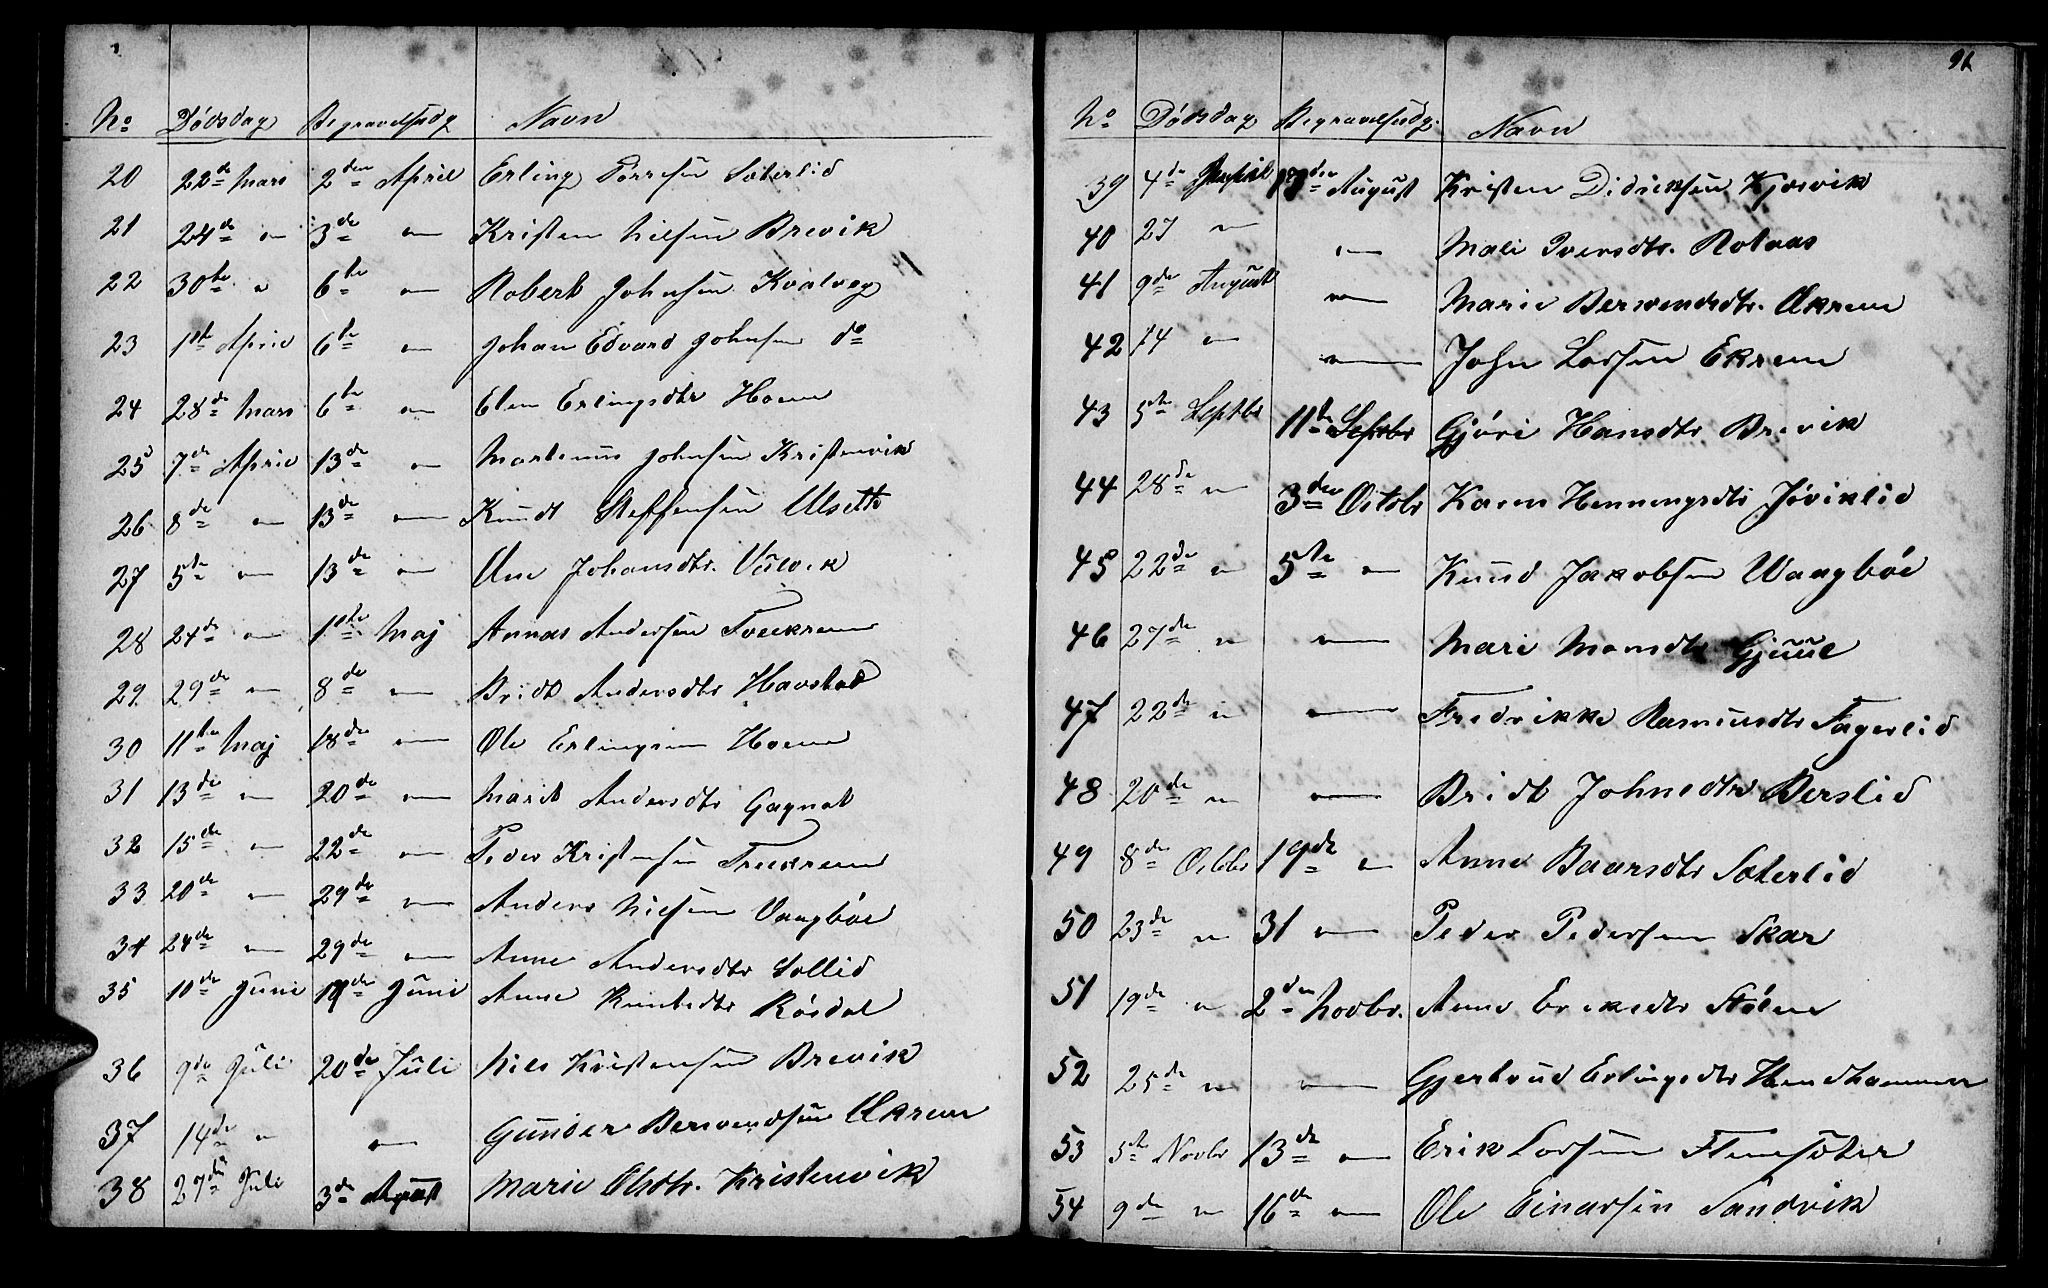 No Dödsdag Begravelsesdg Navn
20 22de Mars 2den April Erling Torresen Sæterlid
21 24de " 3de " Kristen Nilsen Brevik
22 30te " 6te " Robert Johnsen Kvalvag
23 1ste April 6te " Johan Edvard Johnsen do
24 28de Mars 6te " Elen Erlingsdtr Hoem
25 7de April 13de " Martinus Johnsen Kristenvik
26 8de " 13de " Knudt Steffensen Ulseth
27 5te " 13de " Ane Johansdtr.
28 24de " 1ste Maj Andersen
29 29de " 8de " Bridt Andersdtr Havstad
30 11te Maj 18de " Ole Erlingsen Hoem
31 13de " 20de " Marit Andersdtr Gagnat
32 15de " 22de " Peder Kristensen
33 20de " 29de " Anders Nilsen Vaagböe
34 24de " 29de " Anne Andersdtr Sollid
35 10de Juni 19de Juni Anne Knudtsdtr Rösdal
36 9de Juli 20de Juli Nils Kristensen Brevik
37 14de " " Gunder Bervendsen Ækrem
38 27de Juli 3de August Marie Olsdtr. Kristenvik
91
No Dödsdag Begravelsesdg. Navn
39 4de August Kristen Didriksen Kjørvik
40 27 " " Mali Iversdtr. Rotaas
41 9de August " Marie Bervendsdtr. Ækrem
42 14 " " John Larsen Ekrem
43 5te Septbr 11te Septbr Gjöri Hansdtr Brevik
44 28de " 3den Octobr Karen Henningsdtr Jöviklid
45 22de " 5te " Knud Jakobsen Waagböe
46 27de " " Mari Monsdtr Gjuul
47 22de " " Fredrikke Rasmusdtr Fagerlid
48 20de " " Bridt Johnsdtr Berslid
49 8de Octbr 19de " Anne Baarsdtr Sæterlid
50 23de " 31 " Peder Pedersen Skar
51 19de " 2den Novbr. Anne Eriksdtr Stölen
52 25de " " Gjertrud Erlingsdtr Hendhammer
53 5te Novbr 13de " Erik Larsen Flemsæter
54 9de " 16de " Ole Einarsen Sandvik